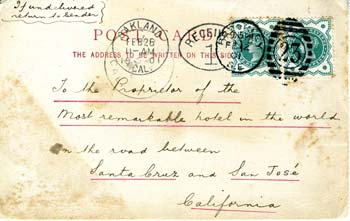 If undelivered
return to sender
POST CARD
THE ADDRESS TO BE WRITTEN ON THIS SIDE
OAKLAND
FEB 26
11 AM
CAL.
REC'D
To the Proprietor of the
Most remarkable hotel in the world
on the road between
Santa Cruz and San José
California